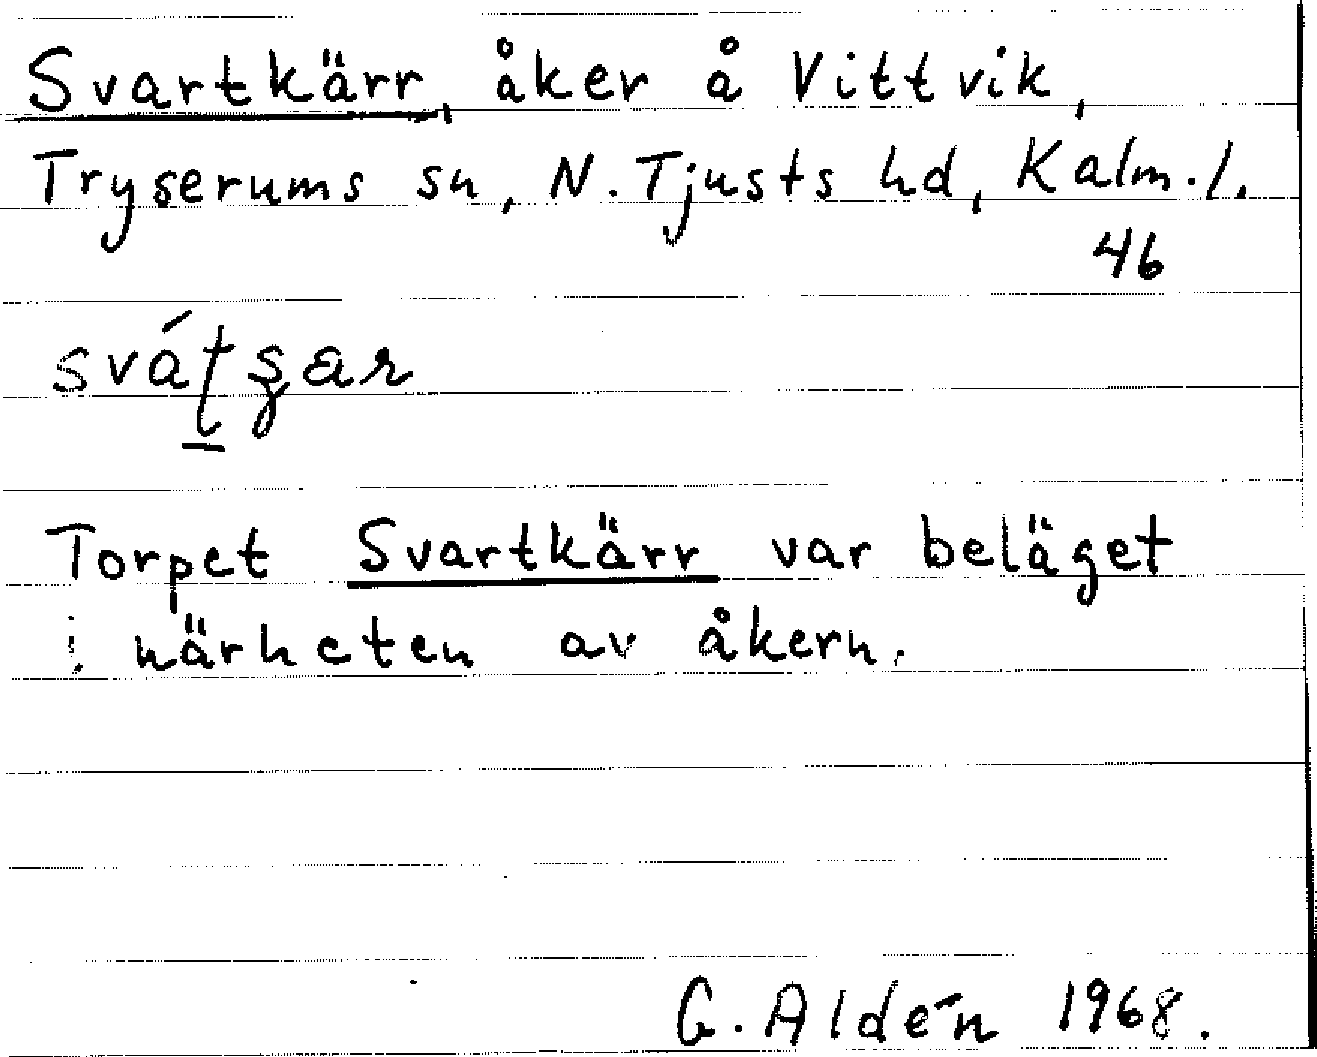 Svartkärr, åker å Vittvik,
Tryserums sn, N. Tjusts hd, Kalm. l.
46
Torpet Svartkärr var beläget
i närheten av åkern.
G. Aldén 1968.